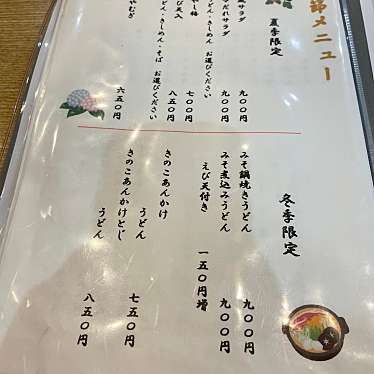 節メニュー
夏季限定
サラダ
だれサラダ 九〇〇円
九〇〇円
うどん・きしめん お選びください
八五〇円
七〇〇円
うどん・きしめん・そば お選びください
やむぎ 六五〇円
冬季限定
みそ鍋焼きうどん 九〇〇円
みそ煮込みうどん 九〇〇円
えび天付き 一五〇円増
きのこあんかけ
うどん 七五〇円
きのこあんかけとじ
うどん 八五〇円